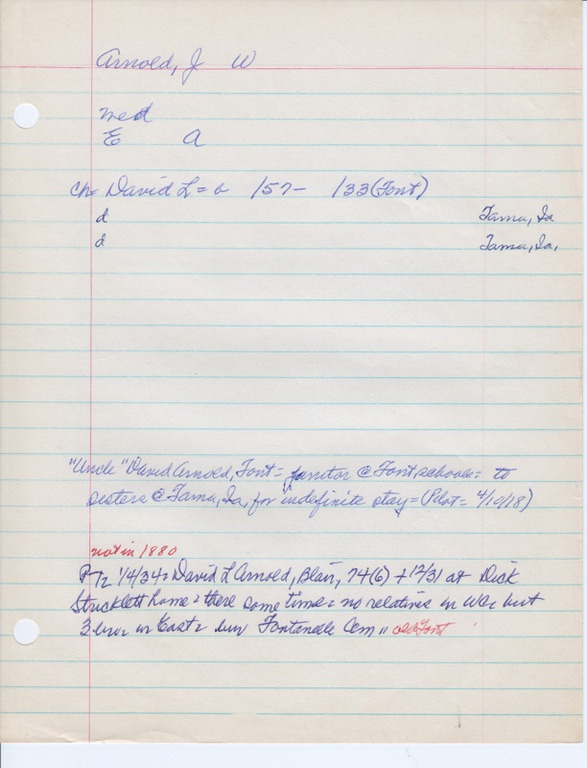 Arnold, J W
med
E A
ch= David L= b /57- /33 (Font)
d Tama, Ia
d Tama, Ia,
"Uncle" David Arnold, Font= janitor @ Font schools= to
sisters @ Tama, Ia, for indefinite stay= (Pilot= 4/10/18)
not in 1880
1/4/34= David L Arnold, Blair, 74(6) + 12/31 at Dick
Stricklett home= there some time= no relatives in WCo but
3 bros in East= bur Fontanelle Cem " old Font